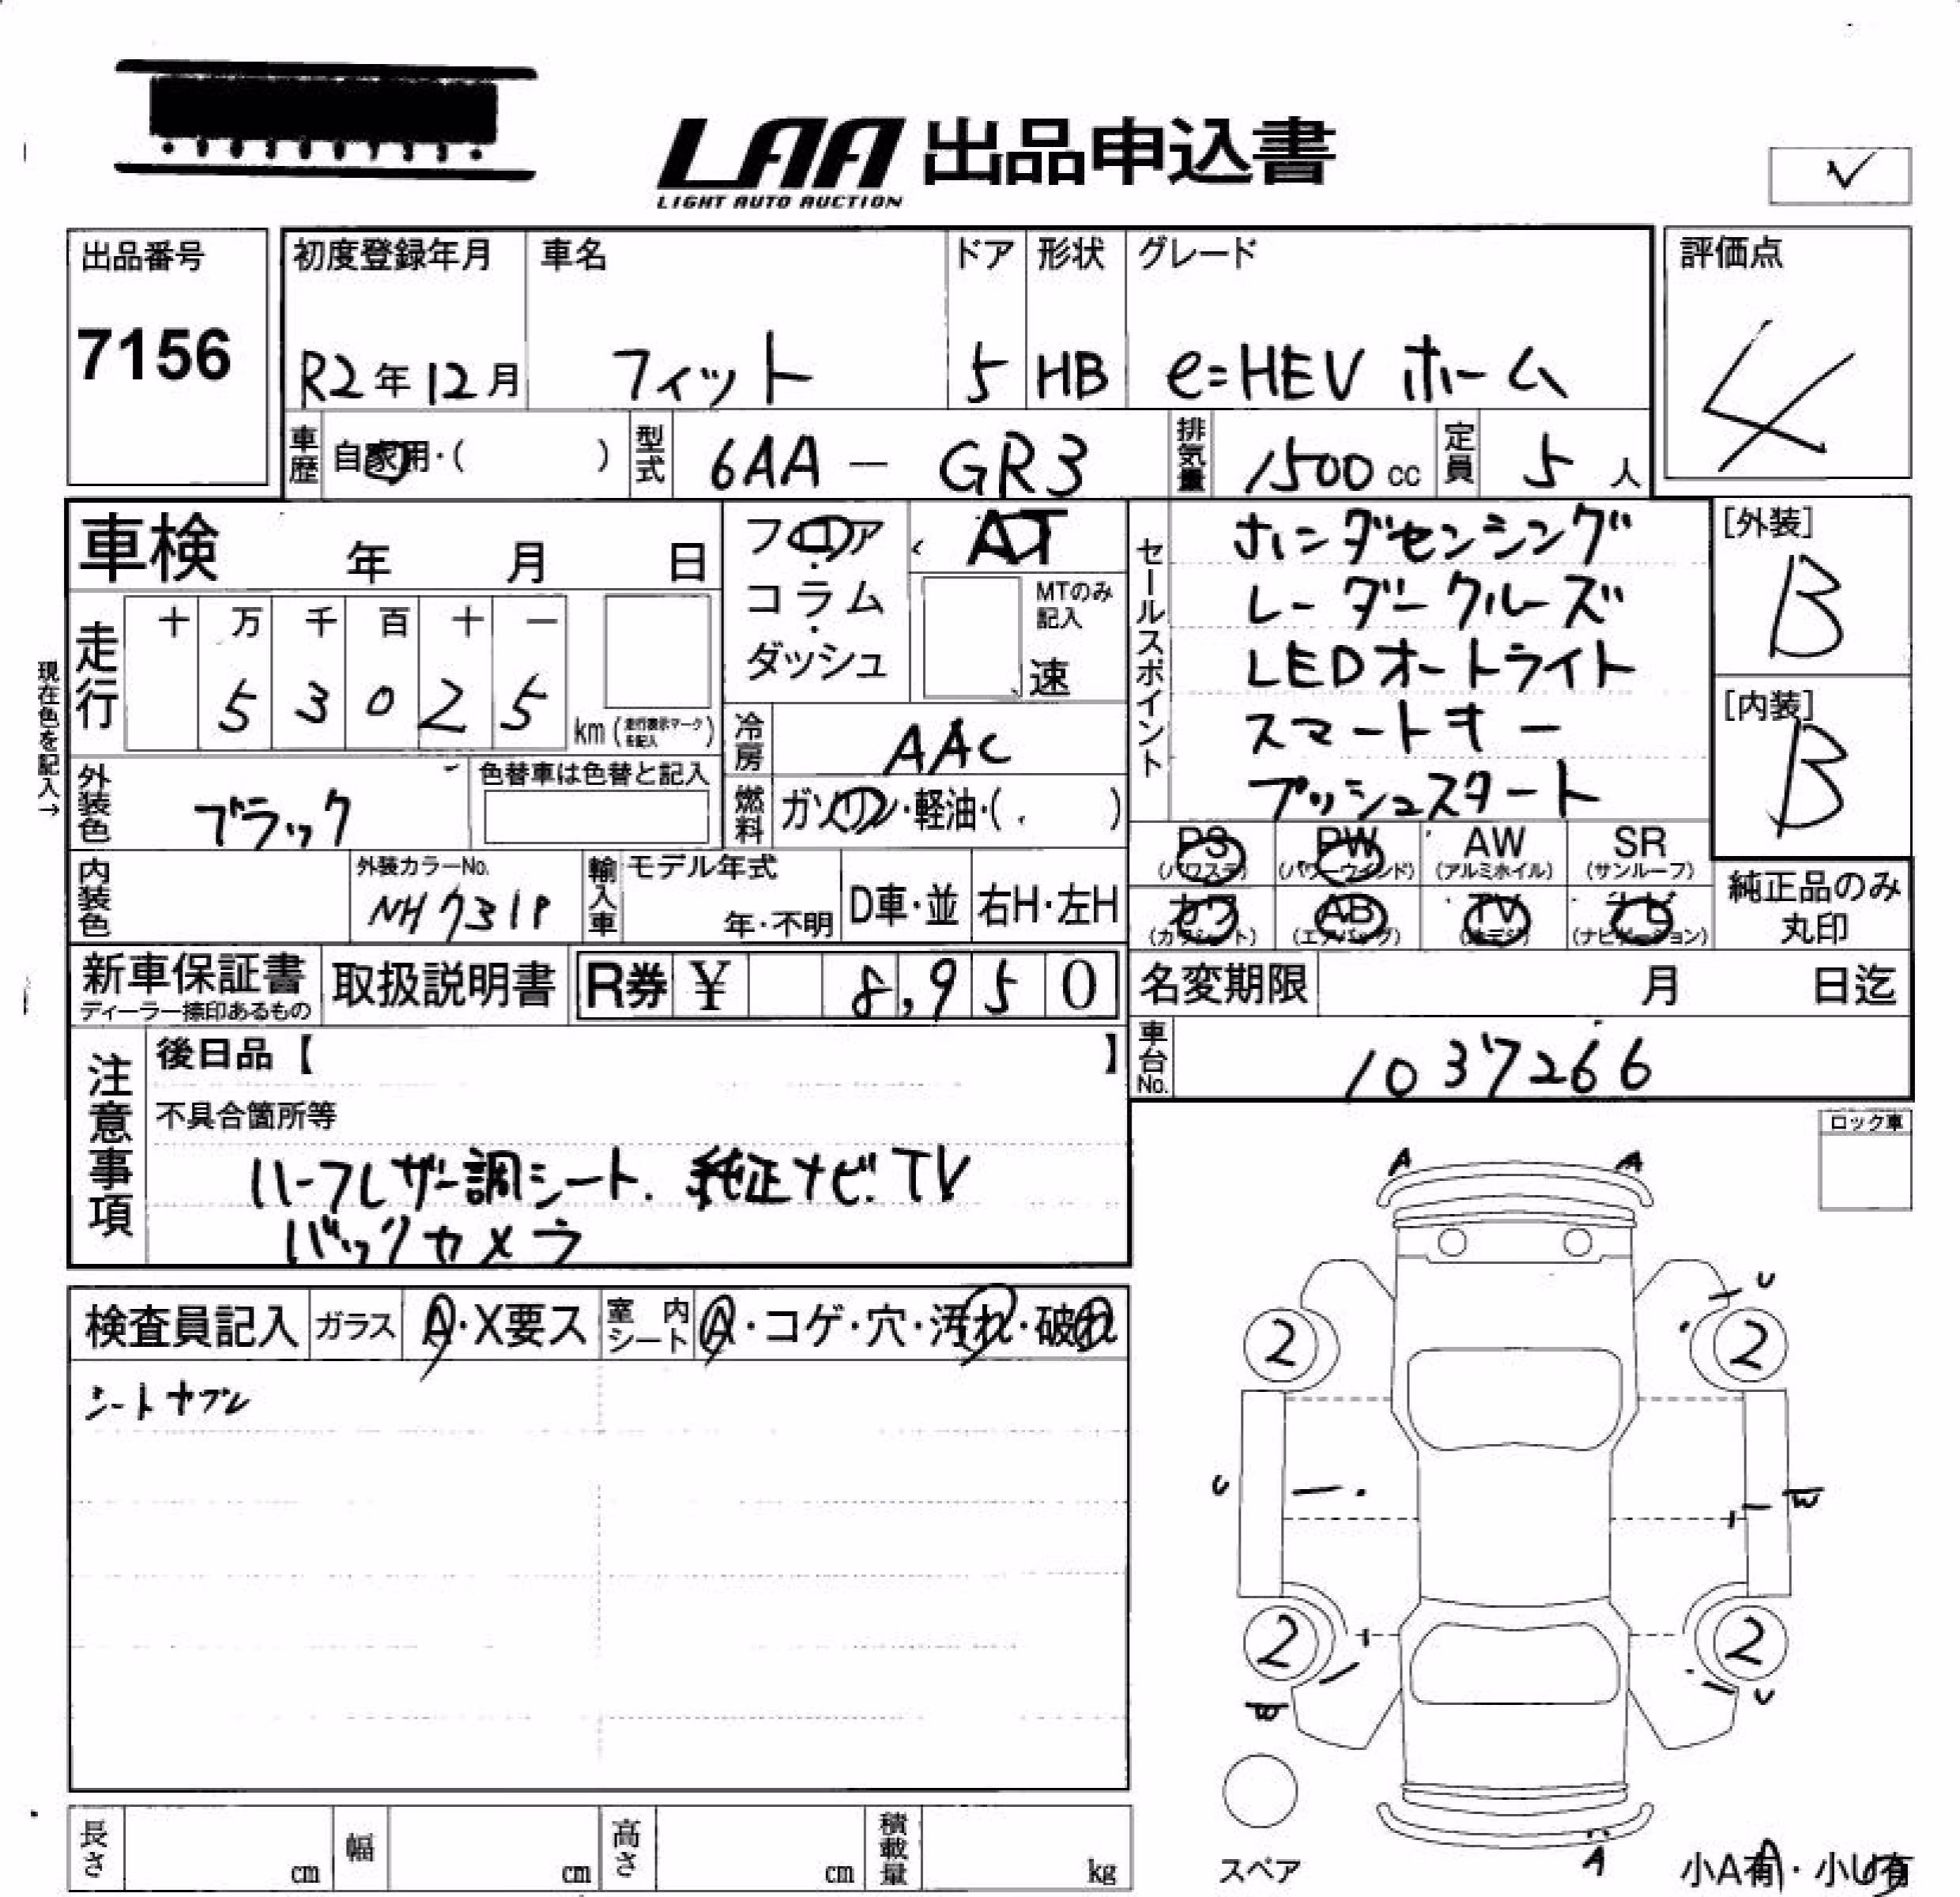 LAA 出品申込書
LIGHT AUTO AUCTION
✓
出品番号
7156
初度登録年月
R2年12月
車名
フィット
ドア
5
形状
HB
グレード
e:HEV ホーム
評価点
4
車歴
自家用・( )
型式
6AA - GR3
排気量
1500 cc
定員
5 人
車検 年 月 日
フロア・コラム・ダッシュ
AT
MTのみ記入
速
セールスポイント
ホンダセンシング
レーダークルーズ
LEDオートライト
スマートキー
プッシュスタート
[外装]
B
[内装]
B
現在色を記入→
走行
十 万 千 百 十 一
5 3 0 2 5
km (走行表示マークを記入)
冷房
AAC
外装色
ブラック
色替車は色替と記入
燃料
ガソリン・軽油・( )
内装色
外装カラーNo.
NH731P
輸入車
モデル年式
年・不明
D車・並
右H・左H
PS
(パワステ)
PW
(パワーウインド)
AW
(アルミホイル)
SR
(サンルーフ)
カワ
(カワシート)
AB
(エアバッグ)
TV
(地デジ)
ナビ
(ナビゲーション)
純正品のみ
丸印
新車保証書
ディーラー捺印あるもの
取扱説明書
R券 ¥ 8,950
名変期限 月 日迄
車台No.
1037266
注意事項
後日品【 】
不具合箇所等
ハーフレザー調シート. 純正ナビ.TV
バックカメラ
ロック車
検査員記入
ガラス
A・X要ス
室内シート
A・コゲ・穴・汚れ・破れ
シートヤブレ
A A
U
2 2
U W
2 2
W U
スペア
A
小A有・小U有
長さ cm
幅 cm
高さ cm
積載量 kg